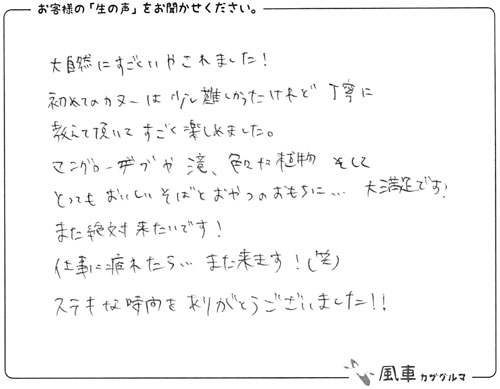 お客様の「生の声」をお聞かせください。
大自然にすごくいやされました！
初めてのカヌーは少し難しかったけれど 丁寧に
教えて頂いてすごく楽しめました。
マングローブや滝、色々な植物 そして
とってもおいしいそばとおやつのおもちに… 大満足です！
また絶対来たいです！
仕事に疲れたら… また来ます！(笑)
ステキな時間をありがとうございました！！
風車 カザグルマ